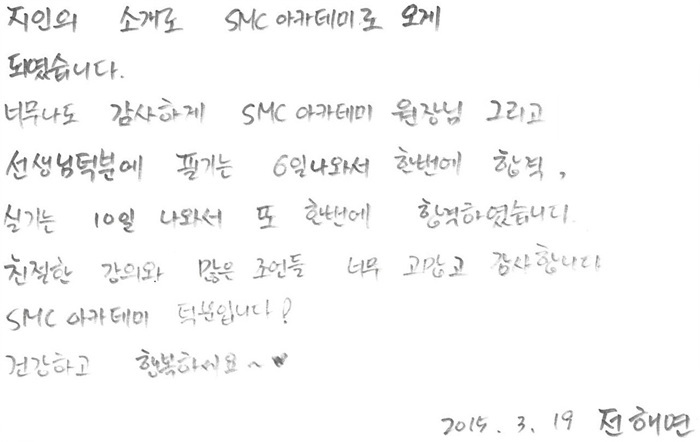 지인의 소개로 SMC아카테미로 오게
되였습니다.
너무나도 감사하게 SMC아카테미 원장님 그리고
선생님턱분에 필기는 6일나와서 한번에 합격,
실기는 10일 나와서 또 한번에 합격하였습니다.
친절한 강의와 많은 조언들 너무 고맙고 감사합니다
SMC아카테미 턱분입니다?
건강하고 행복하세요~♥
2015. 3. 19 전해면